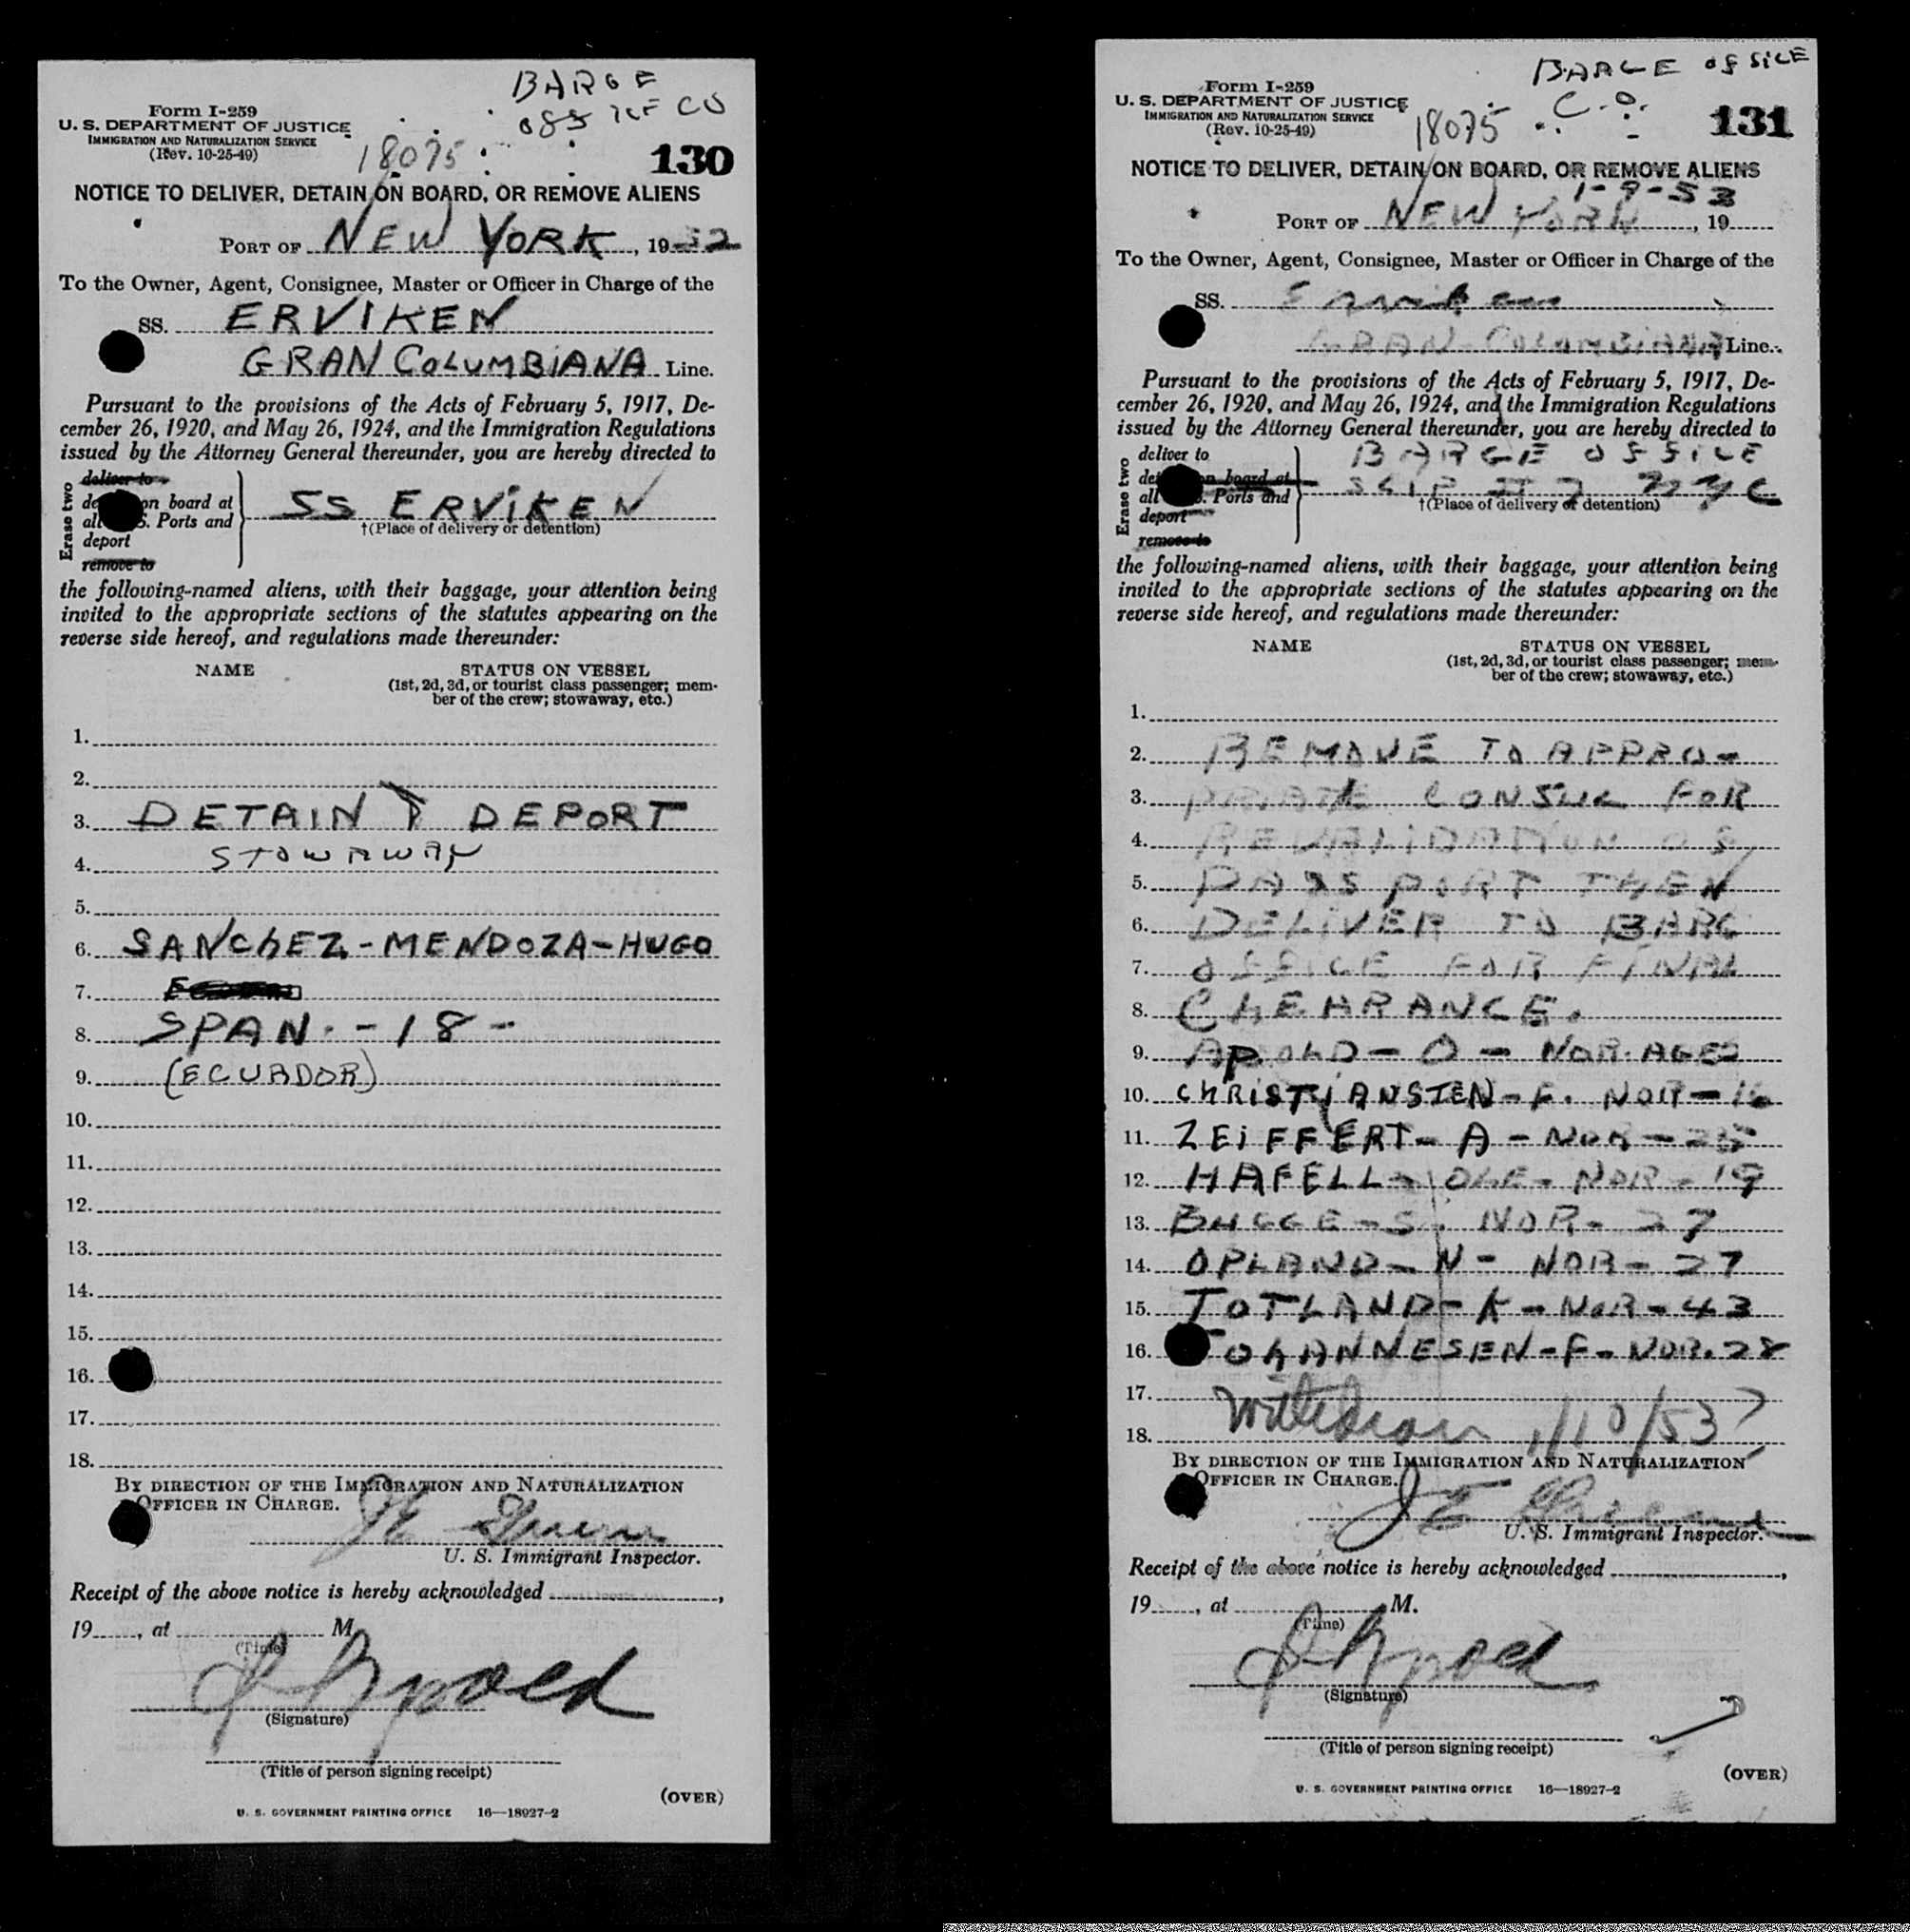 BARGE
OFFICE CO
Form I-259
U. S. DEPARTMENT OF JUSTICE
IMMIGRATION AND NATURALIZATION SERVICE
(Rev. 10-25-49)
18075
130
NOTICE TO DELIVER, DETAIN ON BOARD, OR REMOVE ALIENS
PORT OF NEW YORK, 1952
To the Owner, Agent, Consignee, Master or Officer in Charge of the
SS. ERVIKEN
GRAN COLUMBIANA Line.
Pursuant to the provisions of the Acts of February 5, 1917, De-
cember 26, 1920, and May 26, 1924, and the Immigration Regulations
issued by the Attorney General thereunder, you are hereby directed to
Erase two
deliver to
on board at
Ports and
deport
remove to
SS ERVIKEN
†(Place of delivery or detention)
the following-named aliens, with their baggage, your attention being
invited to the appropriate sections of the statutes appearing on the
reverse side hereof, and regulations made thereunder:
NAME
STATUS ON VESSEL
(1st, 2d, 3d, or tourist class passenger; mem-
ber of the crew; stowaway, etc.)
1.
2.
3. DETAIN & DEPORT
4. STOWAWAY
5.
6. SANCHEZ-MENDOZA-HUGO
7.
8. SPAN. - 18 -
9. (ECUADOR)
10.
11.
12.
13.
14.
15.
16.
17.
18.
BY DIRECTION OF THE IMMIGRATION AND NATURALIZATION
OFFICER IN CHARGE.
U. S. Immigrant Inspector.
Receipt of the above notice is hereby acknowledged
19, at M.
(Time)
(Signature)
(Title of person signing receipt)
(OVER)
U. S. GOVERNMENT PRINTING OFFICE 16—18927-2
BARGE OFFICE
C.O.
Form I-259
U. S. DEPARTMENT OF JUSTICE
IMMIGRATION AND NATURALIZATION SERVICE
(Rev. 10-25-49)
18075
131
NOTICE TO DELIVER, DETAIN ON BOARD, OR REMOVE ALIENS
1-9-53
PORT OF NEW YORK, 19
To the Owner, Agent, Consignee, Master or Officer in Charge of the
SS. Erviken
GRAN COLUMBIANA Line.
Pursuant to the provisions of the Acts of February 5, 1917, De-
cember 26, 1920, and May 26, 1924, and the Immigration Regulations
issued by the Attorney General thereunder, you are hereby directed to
Erase two
deliver to
on board at
Ports and
deport
remove to
BARGE OFFICE
SLIP # 7 NYC
†(Place of delivery or detention)
the following-named aliens, with their baggage, your attention being
invited to the appropriate sections of the statutes appearing on the
reverse side hereof, and regulations made thereunder:
NAME
STATUS ON VESSEL
(1st, 2d, 3d, or tourist class passenger; mem-
ber of the crew; stowaway, etc.)
1.
2. REMOVE TO APPRO-
3. PRIATE CONSUL FOR
4. REVALIDATION OF
5. PASSPORT THEN
6. DELIVER TO BARG
7. OFFICE FOR FINAL
8. CLEARANCE.
9. APOLD - O - NOR. AGE
10. CHRISTIANSTEN - F. NOR - 16
11. ZEIFFERT - A - NOR -
12. HAFELL - OLE - NOR - 19
13. BUGGE - S. NOR - 27
14. OPLAND - N - NOR - 27
15. TOTLAND - K - NOR - 43
16. JOHANNESEN - F - NOR. 28
17. Withdrawn 1/10/53
18.
BY DIRECTION OF THE IMMIGRATION AND NATURALIZATION
OFFICER IN CHARGE.
U. S. Immigrant Inspector.
Receipt of the above notice is hereby acknowledged
19, at M.
(Time)
(Signature)
(Title of person signing receipt)
(OVER)
U. S. GOVERNMENT PRINTING OFFICE 16—18927-2